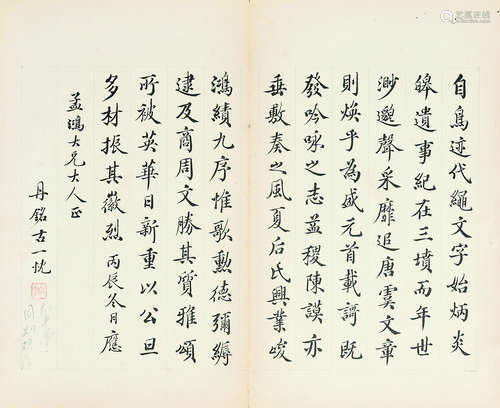 自鳥迹代繩文字始炳炎
皞遺事紀在三墳而年世
渺邈聲采靡追唐虞文章
則煥乎為盛元首載謌既
發吟咏之志益稷陳謨亦
垂敷奏之風夏后氏興業峻
鴻績九序惟歌勲德彌縟
逮及商周文勝其質雅頌
所被英華日新重以公旦
多材振其徽烈 丙辰冬日應
孟鴻大兄大人正
丹銘古一忱